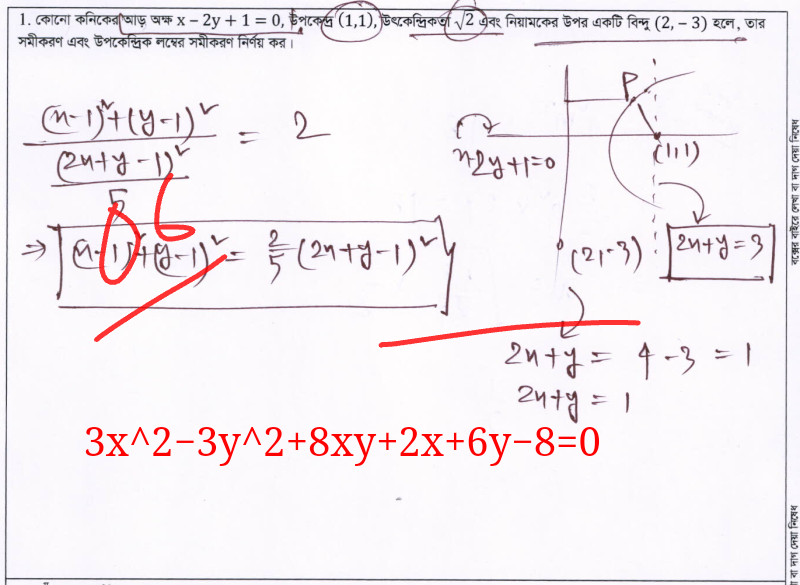 1. কোনো কনিকের আড় অক্ষ x − 2y + 1 = 0, উপকেন্দ্র (1,1), উৎকেন্দ্রিকতা √2 এবং নিয়ামকের উপর একটি বিন্দু (2, − 3) হলে, তার
সমীকরণ এবং উপকেন্দ্রিক লম্বের সমীকরণ নির্ণয় কর।
(x-1)²+(y-1)²
(2x+y-1)²
5
= 2
⇒ (x-1)²+(y-1)² = 2/5 (2x+y-1)²
06
P
x-2y+1=0
(1,1)
(2,-3)
2x+y=3
2x+y = 4-3 = 1
2x+y = 1
3x^2−3y^2+8xy+2x+6y−8=0
বক্সের বাইরে লেখা বা দাগ দেয়া নিষেধ
বা দাগ দেয়া নিষেধ